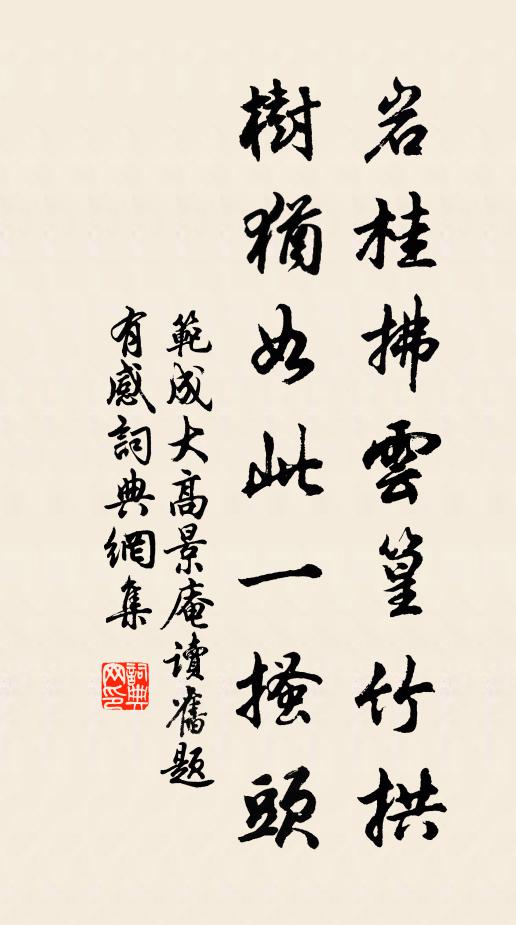 岩桂拂雲篁竹拱
樹猶如此一搔頭
範成大高景庵讀舊題
有感詞典網集
詞典网印